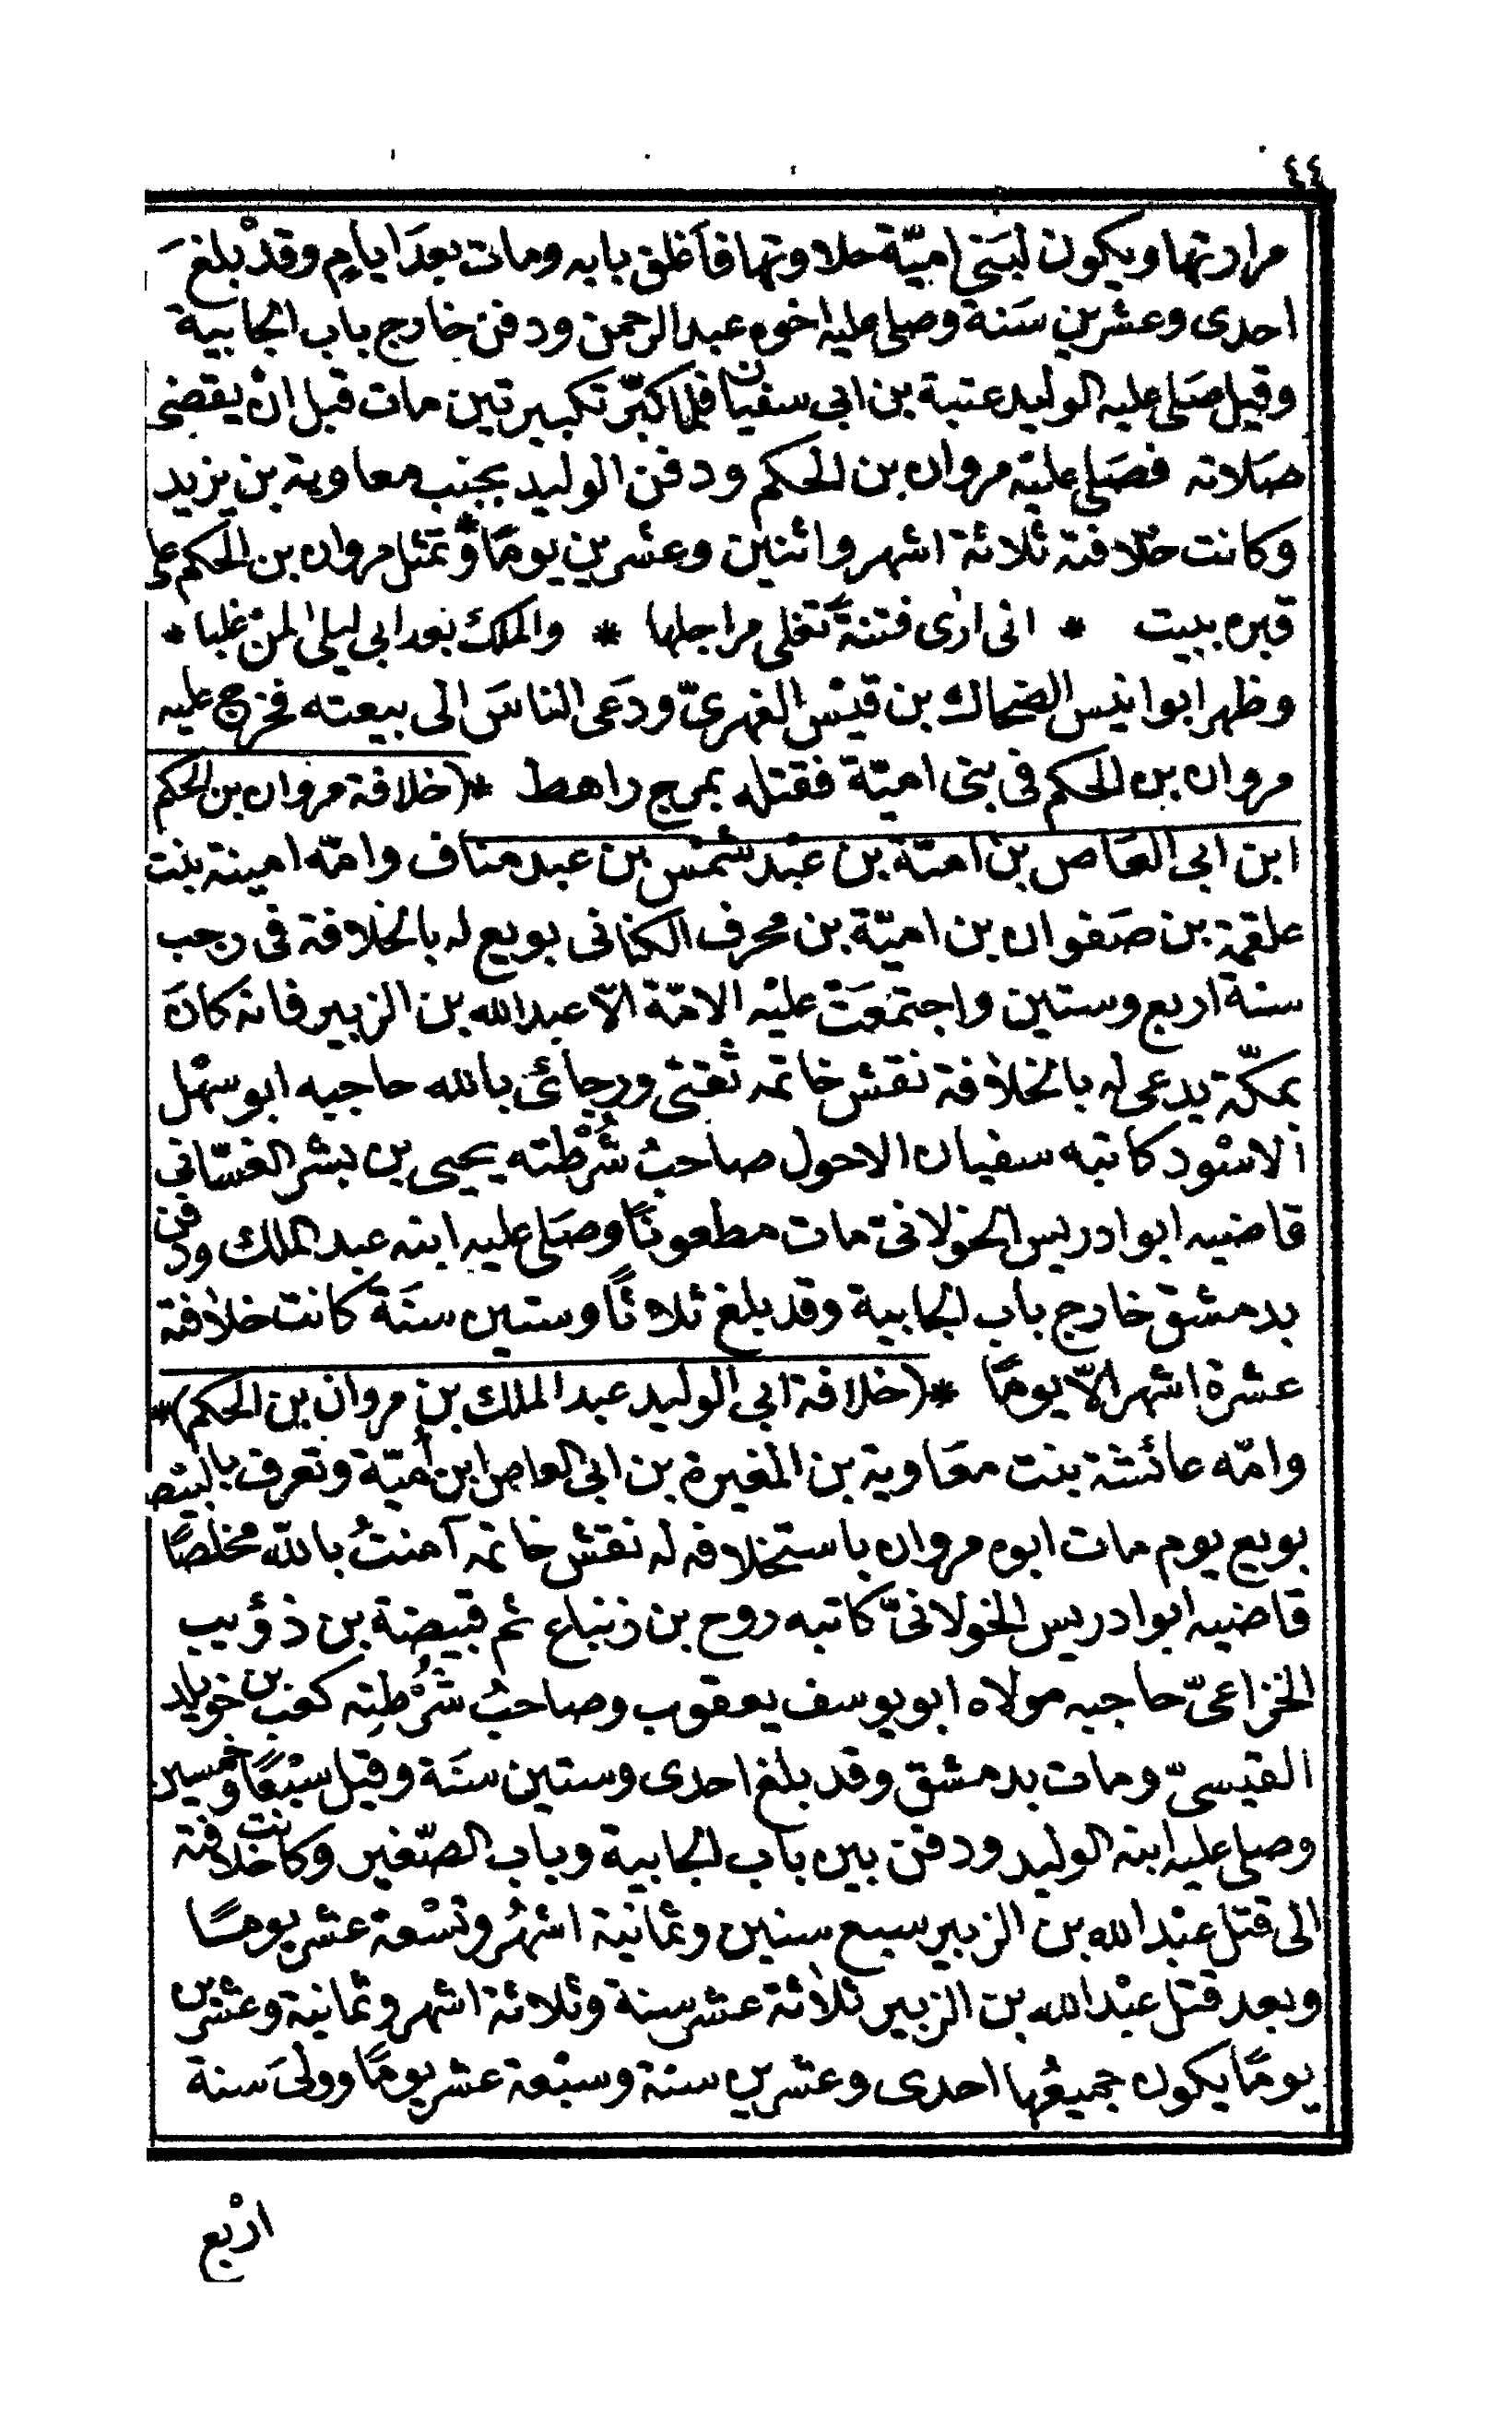 ٤٤
مرارتها ويكون لبَنى اميّة حلاوتها فاَغلق بابه ومات بعدَ ايام وقدْ بلغَ
احدى وعشرين سَنة وصلى عليه اخوه عبد الرحمن ودفن خارج باب الجابية
وقيل صَلى عليه الوليد عتبة بن ابى سفيان فلما كبّر تكبيرتين مات قبل انْ يقضى
صَلاته فصَلى عليْه مروان بن الحكم ودفن الوليد بجنب معاوية بن يزيد
وكانت خلافته ثلاثة اشهر واثنين وعشرين يومًا * وتمثل مروان بن الحكم على
قبره ببيت * انى ارٰى فتنةً تغلى مراجلها * والملك بعد ابى ليلى لمنْ غلبا *
وظهر ابو انيس الضحاك بن قيْس الفهرىّ ودَعى الناسَ الى بيعته فخرج عليه
مروان بن الحكم فى بنى اميّة فقتله بمرج راهط * (خلافة مروان بن الحكم
ابن ابى العَاص بن اميّة بن عبْد شمْس بن عبد مناف وامّه امينة بنت
علقمة بن صَفوان بن اميّة بن محرف الكنانى بويع له بالخلافة فى رجب
سنة اربع وستين واجتمَعَتْ عليْه الامّة الاّ عبد الله بن الزبير فانه كانَ
بمكّة يدعى له بالخلافة نقش خاتمه ثقتى ورجائى بالله حاجبه ابو سهْل
الاسْود كاتبه سفيان الاحول صاحبُ شُرْطته يحيى بن بشر الغسّانى
قاضيه ابو ادريس الخولانىّ مات مطعونًا وصَلى عليه ابنه عبد الملك ودفن
بدمشق خارج باب الجابية وقد بلغ ثلاثًا وستين سنَة كانت خلافته
عشرة اشهر الاّ يومًا * (خلافة ابى الوليد عبد الملك بن مروان بن الحكم) *
وامّه عائشة بنت معَاوية بن المغيرة بن ابى العاص ابن اُميّة وتعرف بالبيْضا
بويع يوم مات ابوه مروان باستخلافه له نقش خاتمه آمنتُ بالله مخلصًا
قاضيه ابو ادريس الخولانىّ كاتبه روح بن زنباع ثم قبيصة بن ذؤيب
الخزاعىّ حاجبه مولاه ابو يوسف يعقوب وصاحبُ شُرْطِته كعب بن خويلد
القيسىّ ومات بدمشق وقد بلغ احدى وستين سنَة وقيل سبْعًا وخمسين
وصلى عليه ابنه الوليد ودفن بين باب الجابية وباب الصّغير وكانت خلافته
الى قتل عبْد الله بن الزبير سبع سنين وثمانية اشهُر وتسْعة عشر يومًا
وبعد قتل عبْد الله بن الزبير ثلاثة عشر سنة وثلاثة اشهر وثمانية وعشرين
يومًا يكون جميعُها احدى وعشرين سنة وسبْعة عشر يومًا وولىَ سنة
ارْبع